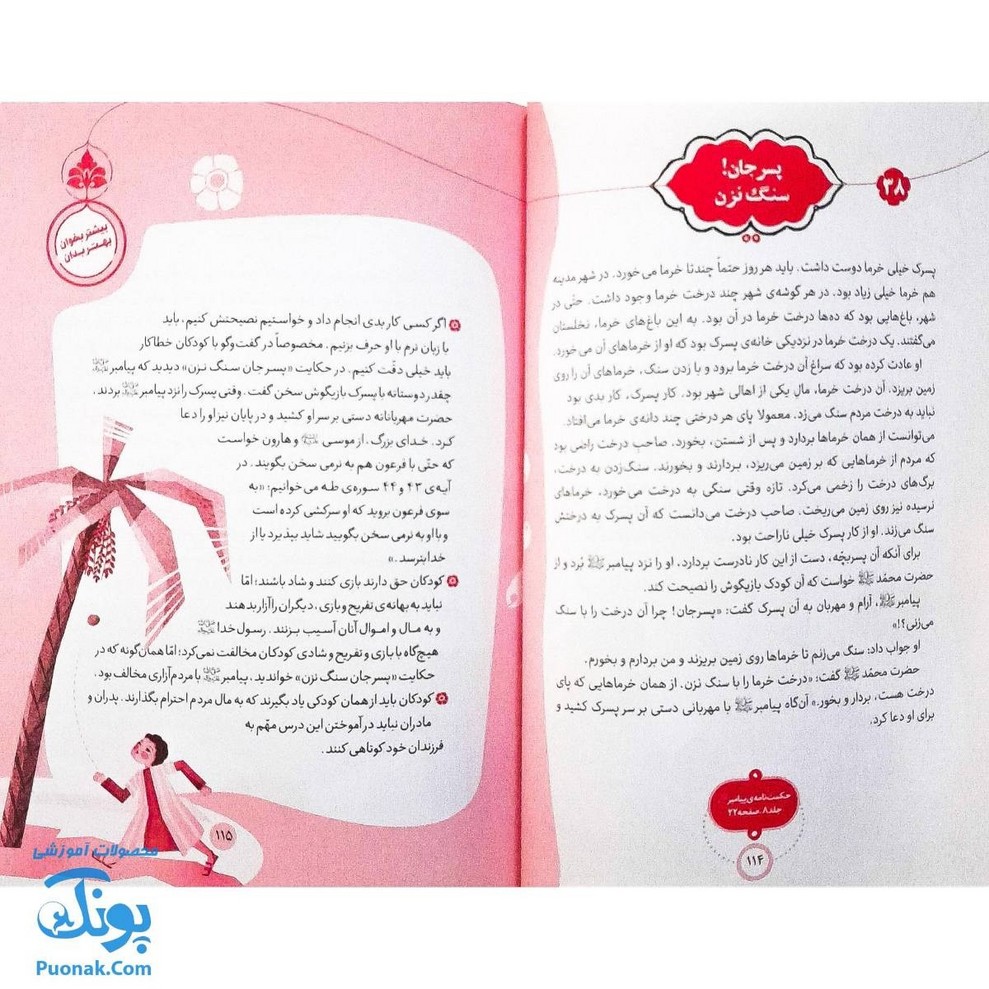 ۳۸
پسر جان!
سنگ نَزن
پسرک خیلی خرما دوست داشت. باید هر روز حتماً چندتا خرما می‌خورد. در شهر مدینه
هم خرما خیلی زیاد بود. در هر گوشه‌ی شهر چند درخت خرما وجود داشت. حتّی در
شهر، باغ‌هایی بود که ده‌ها درخت خرما در آن بود. به این باغ‌های خرما، نخلستان
می‌گفتند. یک درخت خرما در نزدیکی خانه‌ی پسرک بود که او از خرماهای آن می‌خورد.
او عادت کرده بود که سراغ آن درخت خرما برود و با زدن سنگ، خرماهای آن را روی
زمین بریزد. آن درخت خرما، مالِ یکی از اهالی شهر بود. کار پسرک، کار بدی بود
نباید به درخت مردم سنگ می‌زد. معمولا پای هر درختی چند دانه‌ی خرما می‌افتاد.
می‌توانست از همان خرماها بردارد و پس از شستن، بخورد. صاحبِ درخت راضی بود
که مردم از خرماهایی که بر زمین می‌ریزد، بردارند و بخورند. سنگ‌زدن به درخت،
برگ‌های درخت را زخمی می‌کرد. تازه وقتی سنگی به درخت می‌خورد، خرماهای
نرسیده نیز روی زمین می‌ریخت. صاحب درخت می‌دانست که آن پسرک به درختش
سنگ می‌زند. او از کار پسرک خیلی ناراحت بود.
برای آنکه آن پسربچّه، دست از این کار نادرست بردارد. او را نزد پیامبر ﷺ بُرد و از
حضرت محمّد ﷺ خواست که آن کودک بازیگوش را نصیحت کند.
پیامبر ﷺ، آرام و مهربان به آن پسرک گفت: «پسرجان! چرا آن درخت را با سنگ
می‌زنی؟!»
او جواب داد: سنگ می‌زنم تا خرماها روی زمین بریزند و من بردارم و بخورم.
حضرت محمّد ﷺ گفت: «درخت خرما را با سنگ نزن. از همان خرماهایی که پای
درخت هست، بردار و بخور.» آن‌گاه پیامبر ﷺ با مهربانی دستی بر سر پسرک کشید و
برای او دعا کرد.
حکمت‌نامه‌ی پیامبر
جلد۸، صفحه۲۲
۱۱۴
بیشتر بخوان
بهتر بدان
اگر کسی کار بدی انجام داد و خواستیم نصیحتش کنیم، باید
با زبان نرم با او حرف بزنیم. مخصوصاً در گفت‌وگو با کودکان خطاکار
باید خیلی دقّت کنیم. در حکایت «پسر جان سنگ نزن» دیدید که پیامبر ﷺ
چقدر دوستانه با پسرک بازیگوش سخن گفت. وقتی پسرک را نزد پیامبر ﷺ بردند،
حضرت مهربانانه دستی بر سر او کشید و در پایان نیز او را دعا
کرد. خدای بزرگ، از موسی و هارون خواست
که حتّی با فرعون هم به نرمی سخن بگویند. در
آیه‌ی ۴۳ و ۴۴ سوره‌ی طه می‌خوانیم: «به
سوی فرعون بروید که او سرکشی کرده است
و با او به نرمی سخن بگویید شاید بپذیرد یا از
خدا بترسد.»
کودکان حق دارند بازی کنند و شاد باشند؛ امّا
نباید به بهانه‌ی تفریح و بازی، دیگران را آزار بدهند
و به مال و اموال آنان آسیب بزنند. رسول خدا ﷺ
هیچ‌گاه با بازی و تفریح و شادی کودکان مخالفت نمی‌کرد؛ امّا همان‌گونه که در
حکایت «پسر جان سنگ نزن» خواندید، پیامبر ﷺ با مردم‌آزاری مخالف بود.
کودکان باید از همان کودکی یاد بگیرند که به مال مردم احترام بگذارند. پدران و
مادران نباید در آموختن این درس مهّم به
فرزندان خود کوتاهی کنند.
۱۱۵
محصولات آموزشی
پونک
Puonak.Com